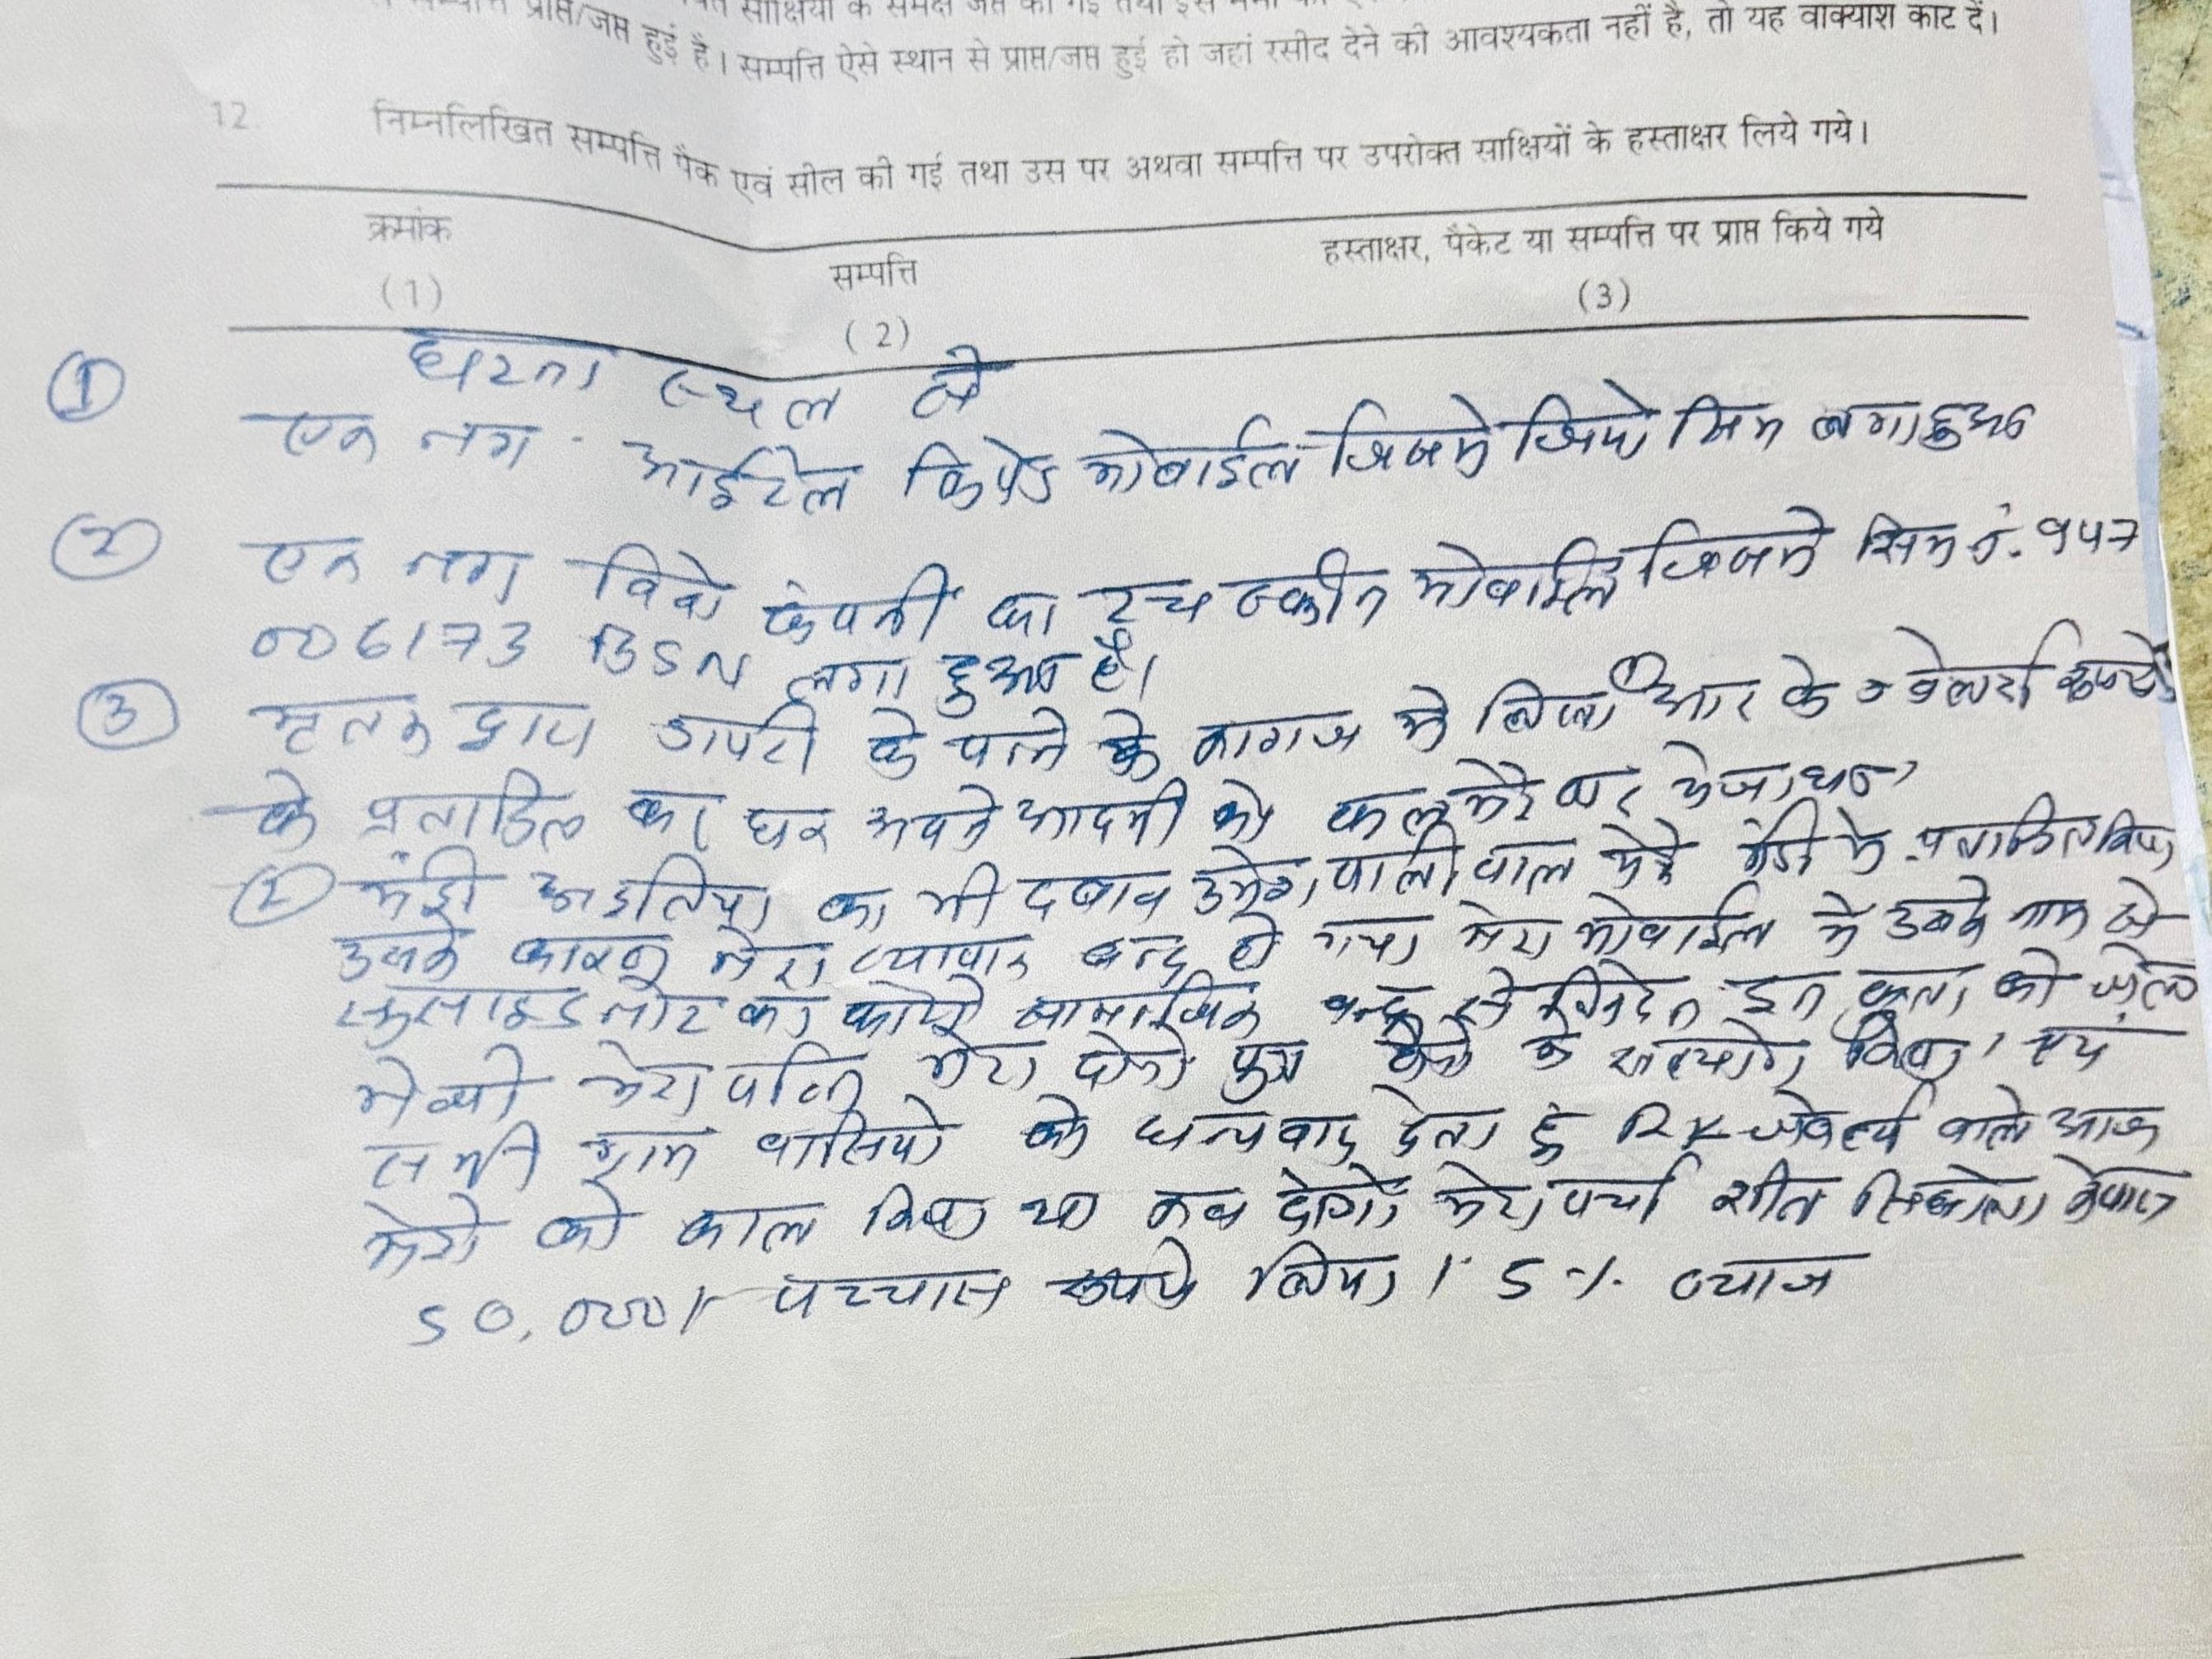 प्राप्त/जप्त हुई है। सम्पत्ति ऐसे स्थान से प्राप्त/जप्त हुई हो जहां रसीद देने की आवश्यकता नहीं है, तो यह वाक्याश काट दें।
12. निम्नलिखित सम्पत्ति पैक एवं सील की गई तथा उस पर अथवा सम्पत्ति पर उपरोक्त साक्षियों के हस्ताक्षर लिये गये।
क्रमांक सम्पत्ति हस्ताक्षर, पैकेट या सम्पत्ति पर प्राप्त किये गये
(1) (2) (3)
घटना स्थल से
① एक नग आईटेल किपेड मोबाईल जिसमे जियो सिम लगा हुआ
② एक नग विवो कंपनी का टच स्क्रीन मोबाईल जिसमे सिम नं. 947
006173 BSN लगा हुआ है।
③ मृतक द्वारा डायरी के पन्ने के कागज मे लिखा ① आर के ज्वेलर्स
के प्रताडित का घर अपने आदमी को कल मेरे घर भेजा था
② मंडी अडतिया का भी दबाव उमेश पालीवाल मेरे मंडी मे प्रताडित किया
उसके कारण मेरा व्यापार बन्द हो गया मेरा मोबाईल मे उसके नाम से
सुसाइड नोट का सामाजिक बन्धु से निवेदन इन को जेल
भेज्यो मेरा पत्नि मेरा दोनो पुत्र के किया एवं
सभी ग्राम वासियो को धन्यवाद देता हूं RK ज्वेलर्स वाले आज
मेरे को काल किया था कब देगो मेरा पर्चा
50,000/- पच्चास रूपये लिया। 5 % व्याज